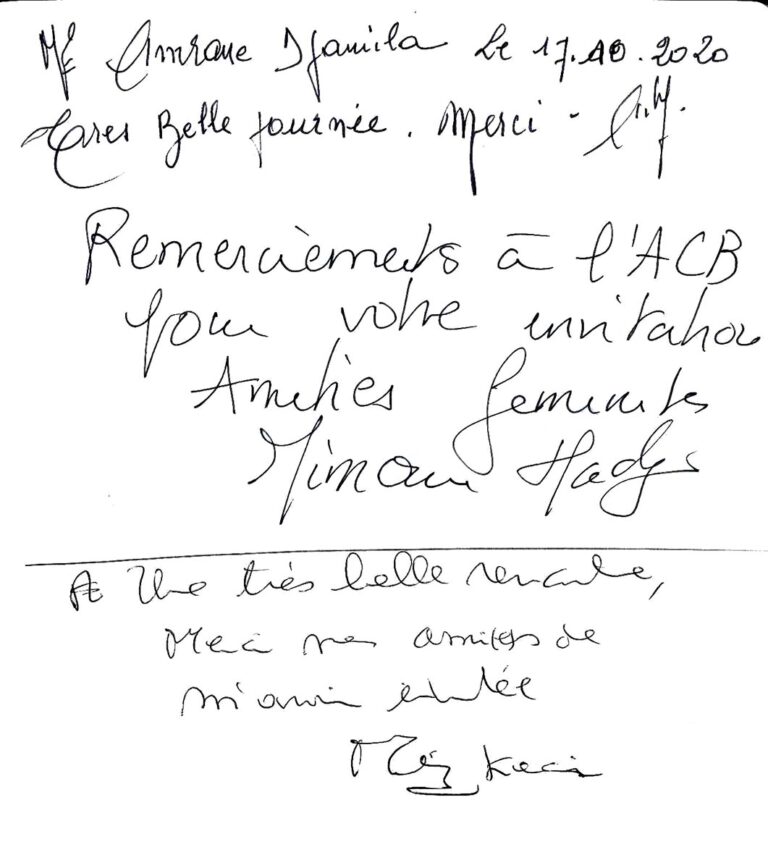 Me Amrane Djamila Le 17.10.2020
Tres Belle journée. Merci -
Remerciements à l'ACB
pour votre invitation
Amitiés féministes
Mimouni Hadja
Une très belle rencontre,
Merci mes amies de
m'avoir invitée
Kaci